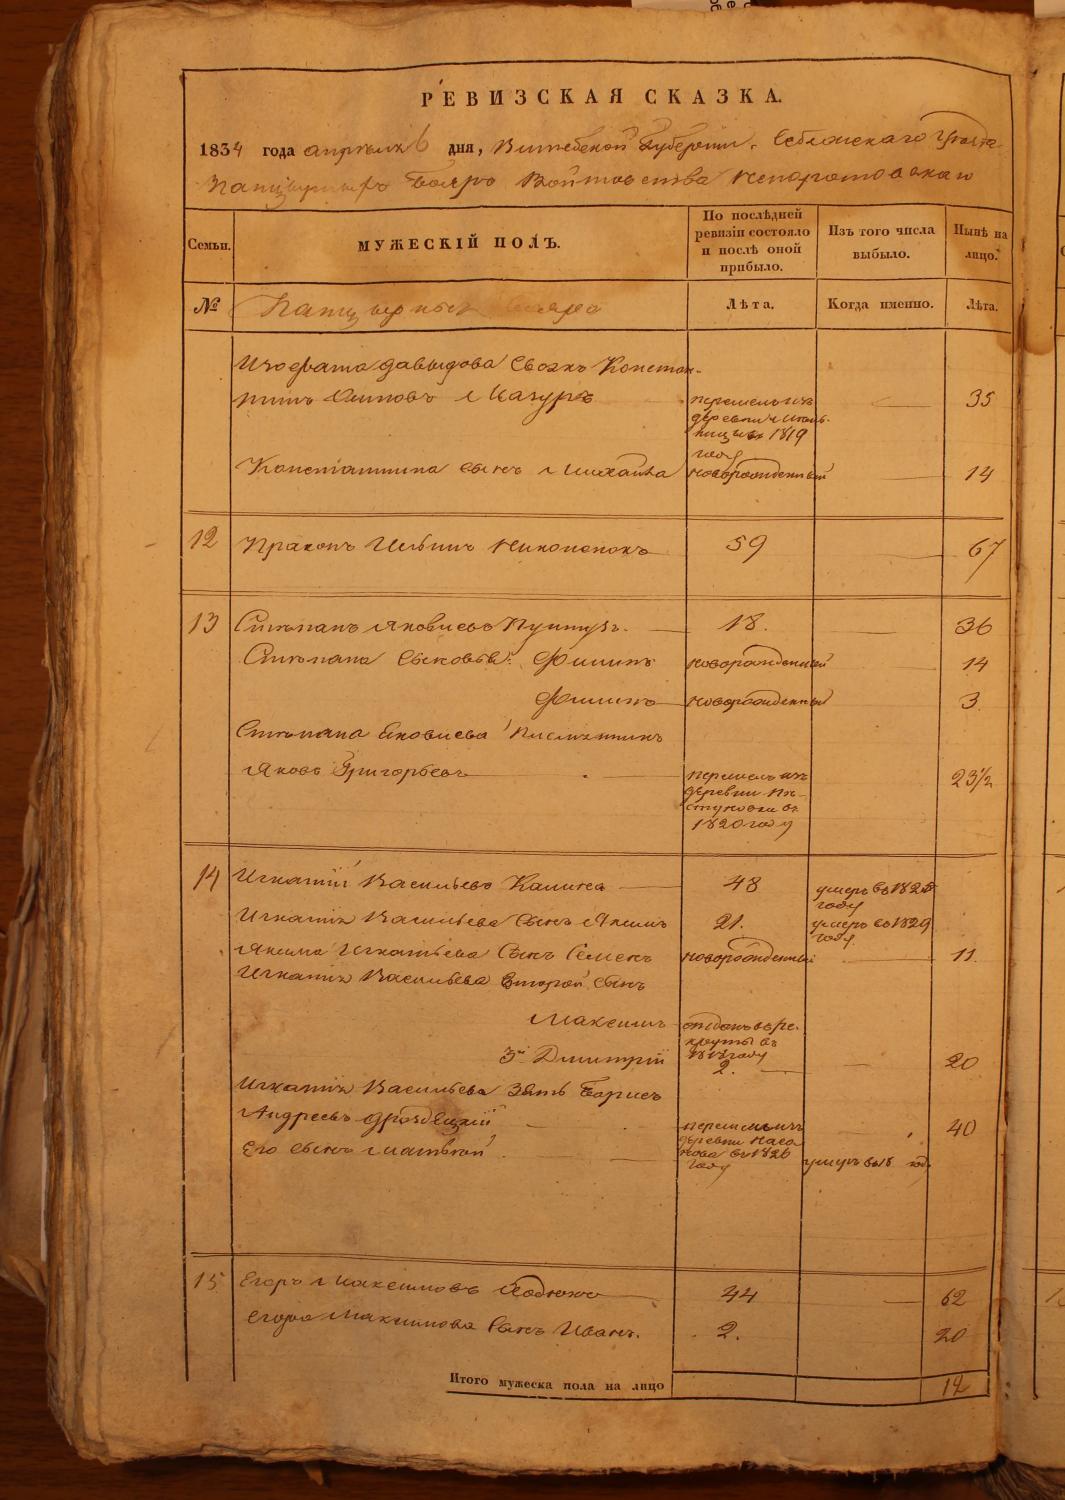 РЕВИЗСКАЯ СКАЗКА.
1834 года апреля 6 дня, Витебской Губернии, Себежскаго Уезда
Панцырныхъ Бояръ Войтовства Непоротовскаго
Семьи.
МУЖЕСКІЙ ПОЛЪ.
По послѣдней ревизіи состояло и послѣ оной прибыло.
Изъ того числа выбыло.
Нынѣ на лицо.
№ Панцырныхъ Бояръ
Лѣта.
Когда именно.
Лѣта.
давыдова Своякъ Констан-
тинъ Мазуръ перешелъ изъ 35
деревни
1819
году
Константина сынъ Михайла новорожденный 14
12 Пракопъ Ильинъ 59 67
13 Стѣпанъ Яковлевъ 18. 36
Стѣпана Сыновья: Филипъ новорожденный 14
Филипъ новорожденный 3
Стѣпана Яковлева Племянникъ
Яковъ Григорьевъ перешелъ изъ 23 1/2
деревни
въ
1820 году
14 Игнатій Васильевъ Калина 48 умеръ въ
году
Игнатія Васильева Сынъ Якимъ 21. умеръ въ 1829
году
Якима Игнатьева Сынъ Семенъ новорожденный 11
Игнатія Васильева Второй сынъ
Максимъ отданъ въ ре-
круты въ
году
3й Дмитрій 2. 20
Игнатія Васильева Зять Борисъ
Андреевъ перешелъ изъ 40
деревни
въ 1826
году
Его сынъ Матвей умеръ
15 Егоръ Максимовъ 44 62
Егора Максимова Сынъ Иванъ. 2. 20
Итого мужеска пола на лицо 12